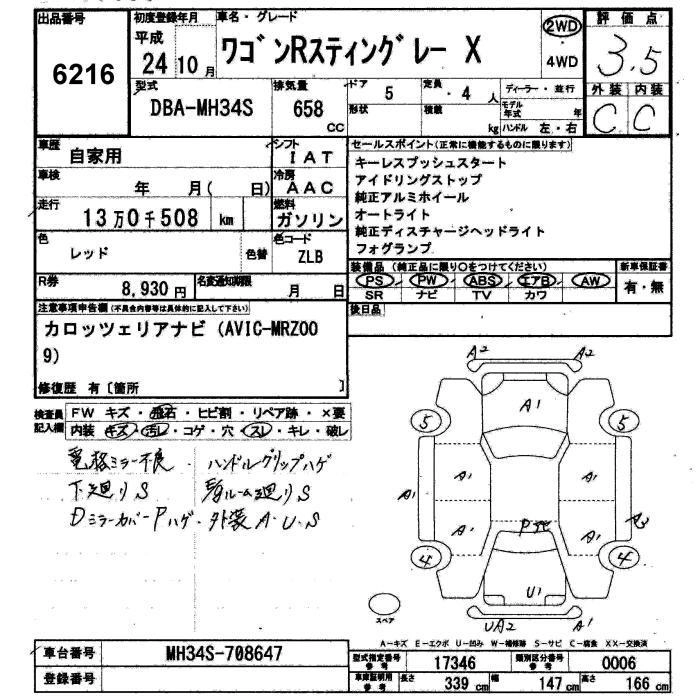 出品番号
6216
初度登録年月
平成
24 10 月
車名・グレード
ワゴンRスティングレー X
2WD
4WD
評価点
3.5
外装 内装
C C
型式
DBA-MH34S
排気量
658
cc
ドア 5
形状
定員 ・4 人
積載 kg
ディーラー・並行
モデル年式 年
ハンドル 左・右
車歴 自家用
シフト IAT
車検 年 月( 日)
冷房 AAC
走行 13万0千508 km
燃料 ガソリン
色 レッド 色替
色コード ZLB
R券 8,930円
名変通知期限 月 日
セールスポイント(正常に機能するものに限ります)
キーレスプッシュスタート
アイドリングストップ
純正アルミホイール
オートライト
純正ディスチャージヘッドライト
フォグランプ
装備品(純正品に限り○をつけてください)
PS PW ABS エアB AW
SR ナビ TV カワ
新車保証書
有・無
後日品
注意事項申告欄(不具合内容等は具体的に記入して下さい)
カロッツェリアナビ(AVIC-MRZ00
9)
修復歴 有〔箇所 〕
検査員記入欄
FW キズ・飛石・ヒビ割・リペア跡・×要
内装 キズ・汚レ・コゲ・穴・スレ・キレ・破レ
ミラー不良・ハンドルグリップハゲ
下廻りS ルーム廻りS
DミラーカバーPハゲ・外装A・U・S
A2 A2
A1
5 5
A1 A1 A1
A1 A1
Pナビ
4 4
U1
UA2 A1
スペア
A-キズ E-エクボ U-凹み W-補修跡 S-サビ C-腐食 XX-交換済
車台番号 MH34S-708647
登録番号
型式指定番号参考 17346
類別区分番号参考 0006
車庫証明用参考 長さ 339 cm 幅 147 cm 高さ 166 cm